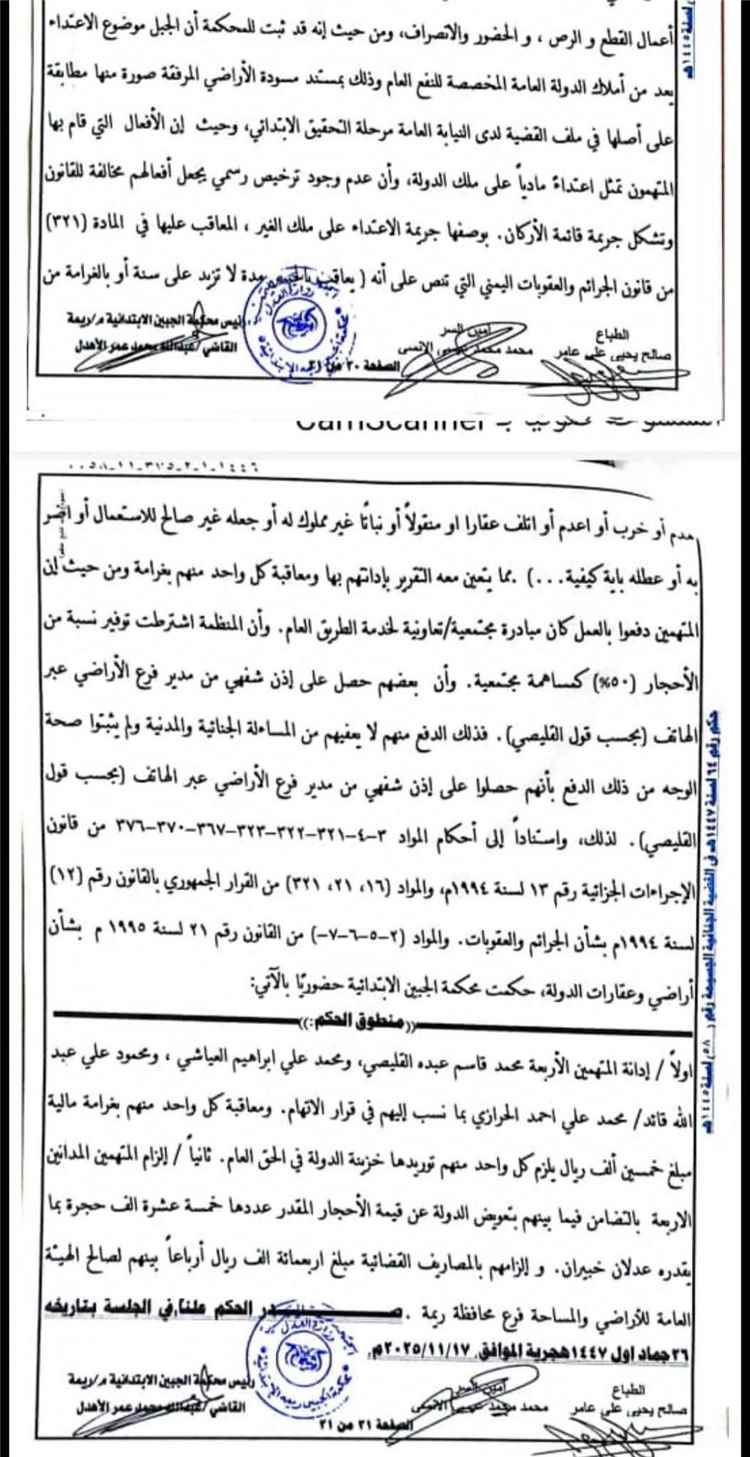 أعمال القطع و الرص ، و الحضور والانصراف، ومن حيث إنه قد ثبت للمحكمة أن الجبل موضوع الاعتداء
يعد من أملاك الدولة العامة المخصصة للنفع العام وذلك بمستند مسودة الأراضي المرفقة صورة منها مطابقة
على أصلها في ملف القضية لدى النيابة العامة مرحلة التحقيق الابتدائي، وحيث إن الأفعال التي قام بها
المتهمون تمثل اعتداءً مادياً على ملك الدولة، وأن عدم وجود ترخيص رسمي يجعل أفعالهم مخالفة للقانون
وتشكل جريمة قائمة الأركان. بوصفها جريمة الاعتداء على ملك الغير ، المعاقب عليها في المادة (٣٢١)
من قانون الجرائم والعقوبات اليمني التي تنص على أنه ( يعاقب بالحبس مدة لا تزيد على سنة أو بالغرامة من
الطباع
صالح يحيى علي عامر
أمين السر
محمد محمد الانسي
رئيس محكمة الجبين الابتدائية م/ريمة
القاضي/عبدالله محمد عمر الأهدل
الصفحة ٢٠ من ٢١
CamScanner
هدم أو خرب أو اعدم أو اتلف عقارا او منقولاً أو نباتًا غير مملوك له أو جعله غير صالح للاستعمال أو اضر
به أو عطله باية كيفية...) .مما يتعين معه التقرير بإدانتهم بها ومعاقبة كل واحد منهم بغرامة ومن حيث إن
المتهمين دفعوا بالعمل كان مبادرة مجتمعية/تعاونية لخدمة الطريق العام. وأن المنظمة اشترطت توفير نسبة من
الأحجار (٥٠%) كمساهمة مجتمعية. وأن بعضهم حصل على إذن شفهي من مدير فرع الأراضي عبر
الهاتف (بحسب قول القليصي). فذلك الدفع منهم لا يعفيهم من المساءلة الجنائية والمدنية ولم يثبتوا صحة
الوجه من ذلك الدفع بأنهم حصلوا على إذن شفهي من مدير فرع الأراضي عبر الهاتف (بحسب قول
القليصي). لذلك، واستناداً إلى أحكام المواد ٣-٤-٣٢١-٣٢٢-٣٢٣-٣٦٧-٣٧٠-٣٧٦ من قانون
الإجراءات الجزائية رقم ١٣ لسنة ١٩٩٤م، والمواد (١٦، ٢١، ٣٢١) من القرار الجمهوري بالقانون رقم (١٢)
لسنة ١٩٩٤م بشأن الجرائم والعقوبات. والمواد (٢-٥-٦-٧-) من القانون رقم ٢١ لسنة ١٩٩٥ م بشأن
أراضي وعقارات الدولة، حكمت محكمة الجبين الابتدائية حضوريًا بالآتي:
((منطوق الحكم:))
اولاً / إدانة المتهمين الأربعة محمد قاسم عبده القليصي، ومحمد علي ابراهيم العياشي ، ومحمود علي عبد
الله قائد/ محمد علي احمد الحرازي بما نسب إليهم في قرار الاتهام. ومعاقبة كل واحد منهم بغرامة مالية
مبلغ خمسين ألف ريال يلزم كل واحد منهم توريدها خزينة الدولة في الحق العام. ثانياً / إلزام المتهمين المدانين
الاربعة بالتضامن فيما بينهم بتعويض الدولة عن قيمة الأحجار المقدر عددها خمسة عشرة الف حجرة بما
يقدره عدلان خبيران. و إلزامهم بالمصاريف القضائية مبلغ اربعمائة الف ريال أرباعاً بينهم لصالح الهيئة
العامة للأراضي والمساحة فرع محافظة ريمة . صدر الحكم علنا في الجلسة بتاريخه
٢٦جماد اول ١٤٤٧هجرية الموافق ٢٠٢٥/١١/١٧م.
الطباع
صالح يحيى علي عامر
أمين السر
محمد محمد الانسي
رئيس محكمة الجبين الابتدائية م/ريمة
القاضي/عبدالله محمد عمر الأهدل
الصفحة ٢١ من ٢١
حكم رقم ٦٤ لسنة ١٤٤٧هـ في القضية الجنائية الجسيمة رقم ٥٨ لسنة ١٤٤٥هـ